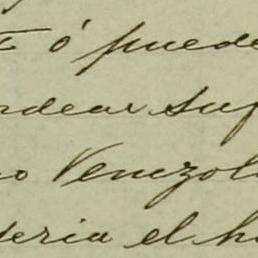 ó puede
dear suf
o Venezol
deria el h